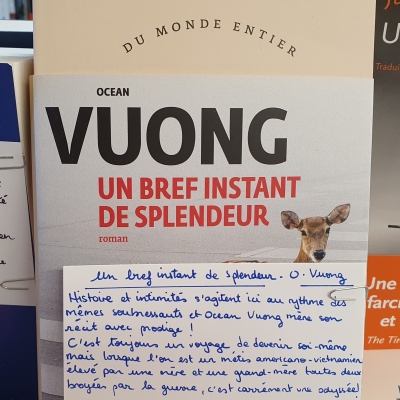 DU MONDE ENTIER
OCEAN
VUONG
UN BREF INSTANT
DE SPLENDEUR
roman
Un bref instant de splendeur. O. Vuong
Histoire et intimités s'agitent ici au rythme des
mêmes soubressauts et Ocean Vuong mène son
récit avec prodige !
C'est toujours un voyage de devenir soi-même
mais lorsque l'on est un métis americano-vietnamien
élevé par une mère et une grand-mère toutes deux
broyées par la guerre, c'est carrément une odyssée!
U
Tradui
Une
farcu
et
The Tim
en